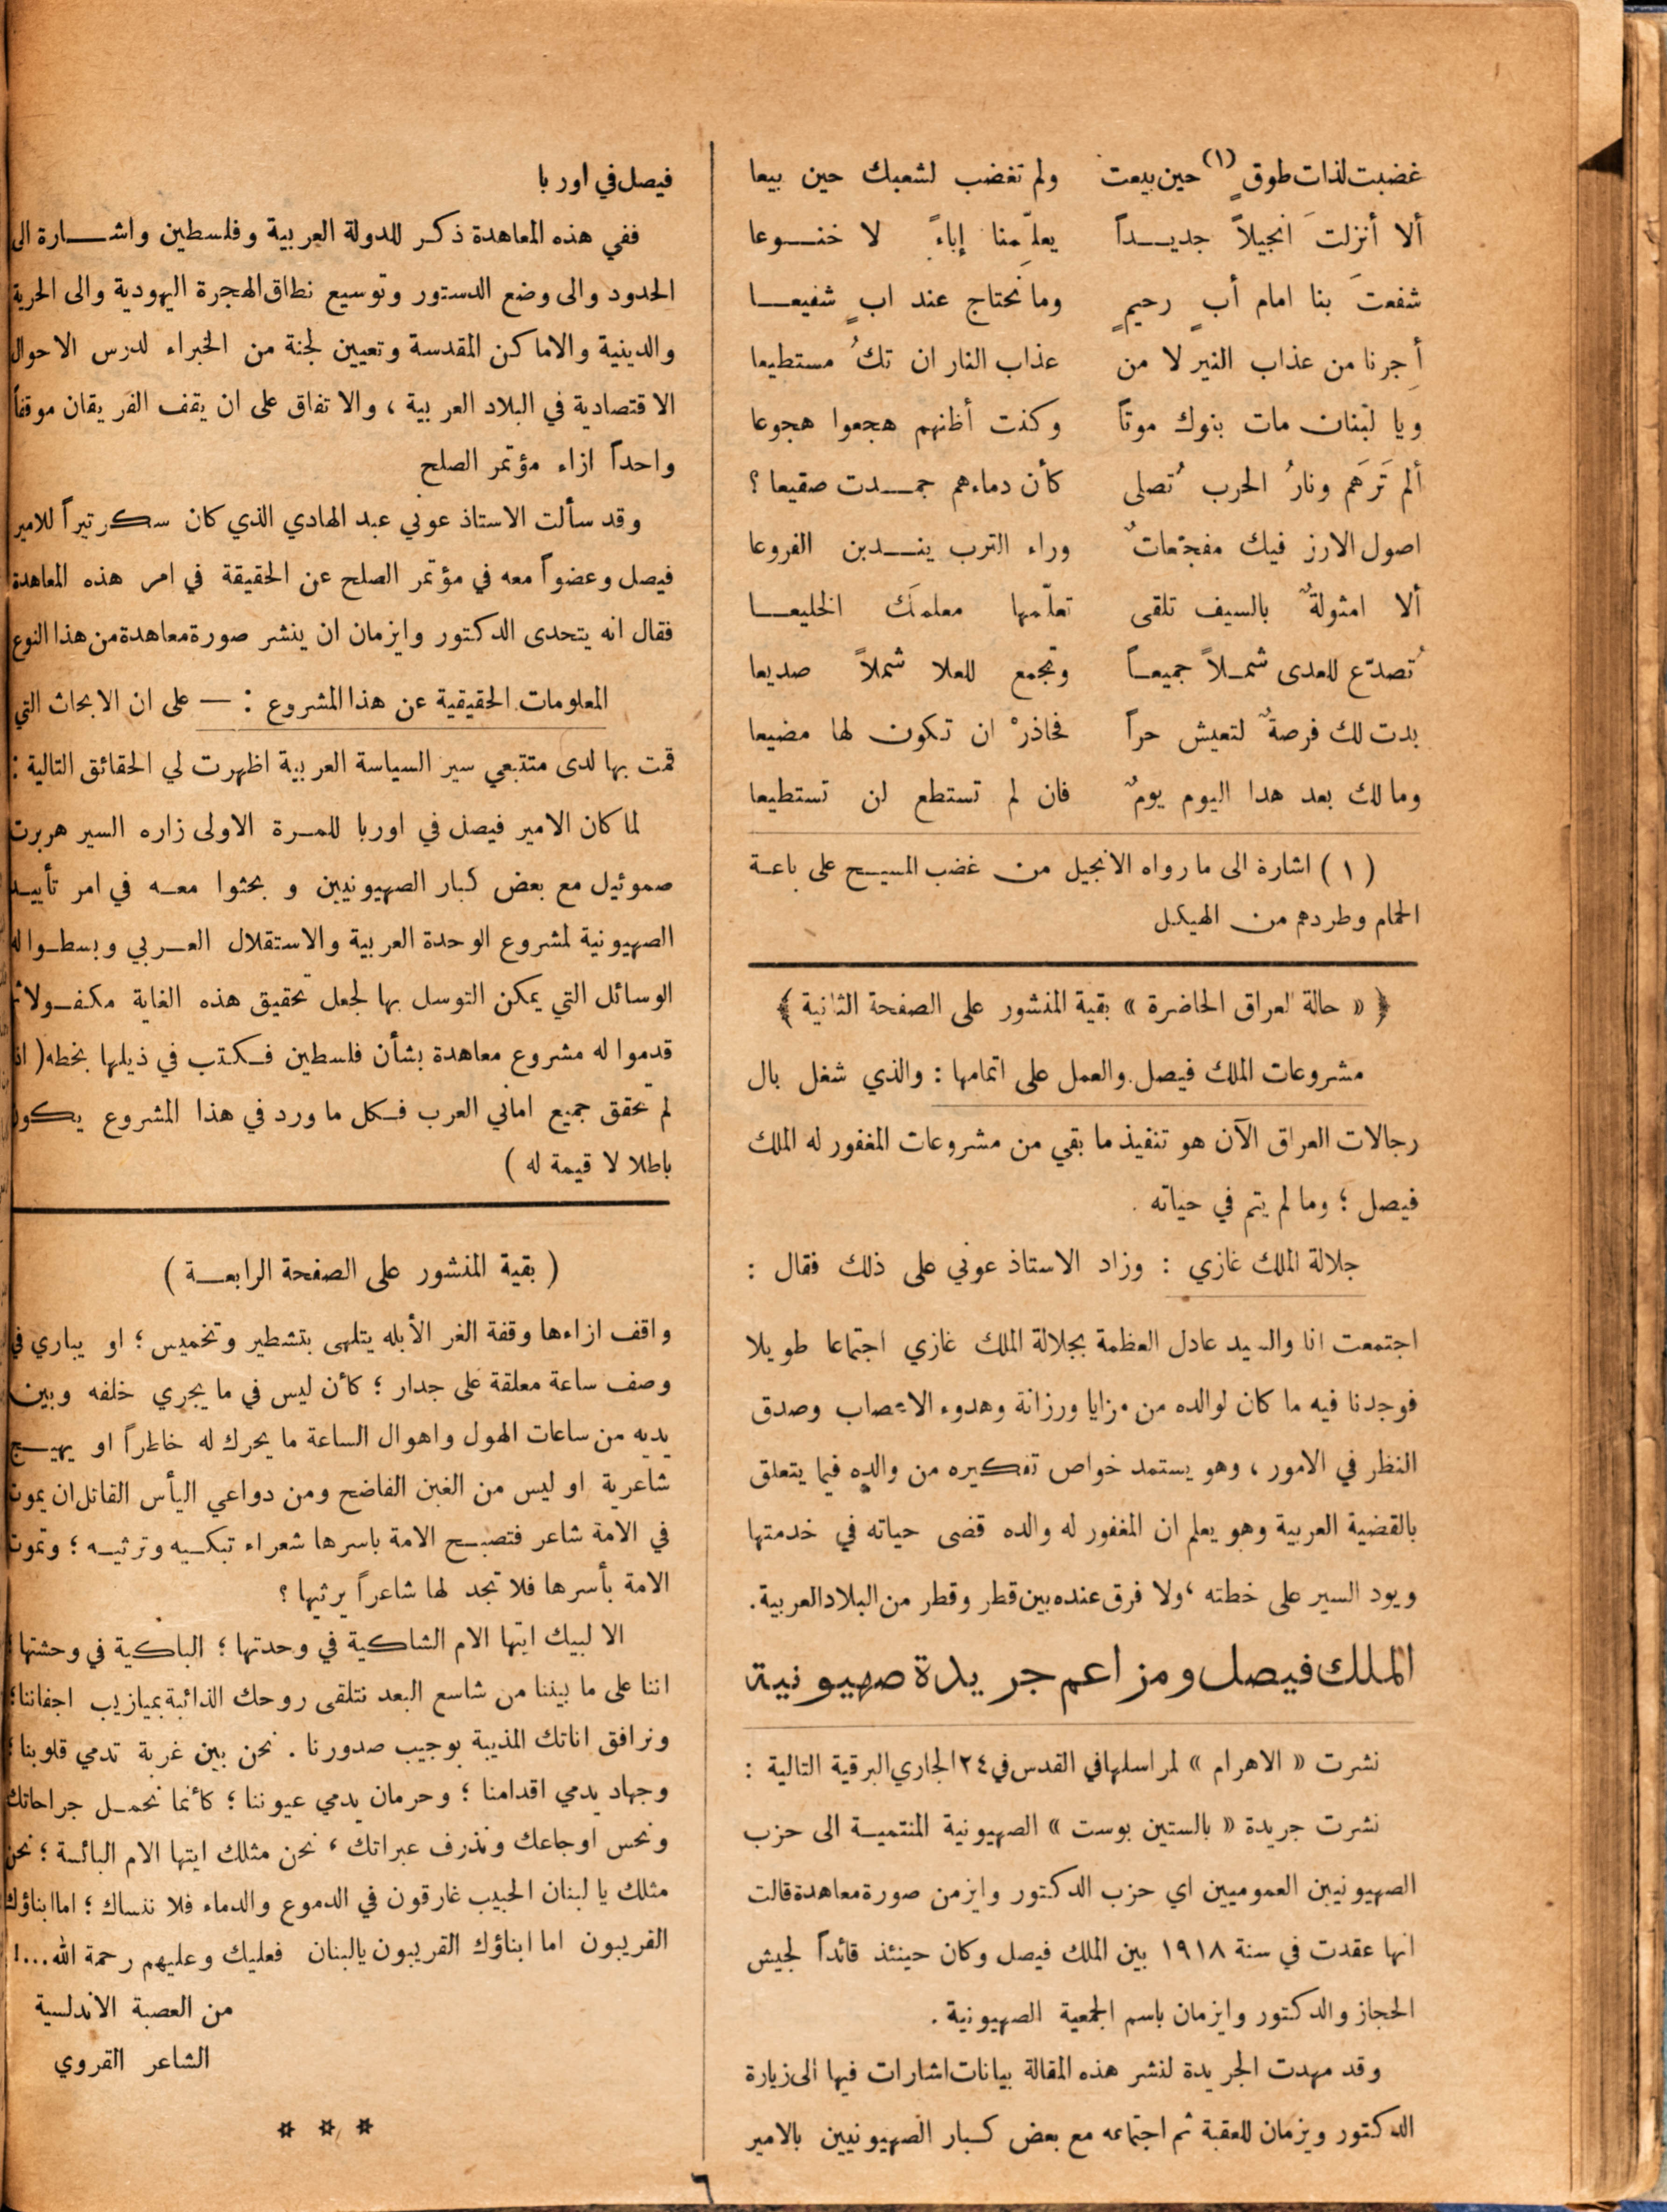 غضبت لذات طوقٍ (١) حين بيعت ولم تغضب لشعبك حين بيعا
ألا أنزلتَ انجيلاً جديـــداً يعلّمنا إباءً لا خنـــوعا
شفعتَ بنا امام أبٍ رحيمٍ وما نحتاج عند ابٍ شفيعـــا
أجرنا من عذاب النير لا من عذاب النار ان تكُ مستطيعا
ويا لبنان مات بنوك موتاً وكنت أظنهم هجعوا هجوعا
ألم تَرَهَم ونارُ الحرب تُصلى كأن دماءهم جمـــدت صقيعا ؟
اصول الارز فيك مفجّعاتٌ وراء الترب ينـــدبن الفروعا
ألا امثولةٌ بالسيف تلقى تعلّمها معلمَك الخليعـــا
تُصدّع للعدى شمـلاً جميعـاً وتجمع للعلا شملاً صديعا
بدت لك فرصةٌ لتعيش حراً فحاذرْ ان تكون لها مضيعا
وما لك بعد هدا اليوم يومٌ فان لم تستطع لن تستطيعا
( ١ ) اشارة الى ما رواه الانجيل من غضب المسيـح على باعـة
الحمام وطردهم من الهيكل
﴿ « حالة العراق الحاضرة » بقية المنشور على الصفحة الثانية ﴾
مشروعات الملك فيصل والعمل على اتمامها : والذي شغل بال
رجالات العراق الآن هو تنفيذ ما بقي من مشروعات المغفور له الملك
فيصل ؛ وما لم يتم في حياته .
جلالة الملك غازي : وزاد الاستاذ عوني على ذلك فقال :
اجتمعت انا والسيد عادل العظمة بجلالة الملك غازي اجتماعا طويلا
فوجدنا فيه ما كان لوالده من مزايا ورزانة وهدوء الاعصاب وصدق
النظر في الامور ، وهو يستمد خواص تفكيره من والده فيما يتعلق
بالقضية العربية وهو يعلم ان المغفور له والده قضى حياته في خدمتها
ويود السير على خطته ، ولا فرق عنده بين قطر وقطر من البلاد العربية.
الملك فيصل ومزاعم جريدة صهيونية
نشرت « الاهرام » لمراسلها في القدس في ٢٤ الجاري البرقية التالية :
نشرت جريدة « بالستين بوست » الصهيونية المنتميـة الى حزب
الصهيونيين العموميين اي حزب الدكتور وايزمن صورة معاهدة قالت
انها عقدت في سنة ١٩١٨ بين الملك فيصل وكان حينئذ قائداً لجيش
الحجاز والدكتور وايزمان باسم الجمعية الصهيونية .
وقد مهدت الجريدة لنشر هذه المقالة ببيانات اشارات فيها الى زيارة
الدكتور ويزمان للعقبة ثم اجتماعه مع بعض كبار الصهيونيين بالامير
فيصل في اوربا
ففي هذه المعاهدة ذكر للدولة العربية وفلسطين واشـــارة الى
الحدود والى وضع الدستور وتوسيع نطاق الهجرة اليهودية والى الحرية
والدينية والاماكن المقدسة وتعيين لجنة من الخبراء لدرس الاحوال
الاقتصادية في البلاد العربية ، والاتفاق على ان يقف الفريقان موقفاً
واحداً ازاء مؤتمر الصلح
وقد سألت الاستاذ عوني عبد الهادي الذي كان سكرتيراً للامير
فيصل وعضواً معه في مؤتمر الصلح عن الحقيقة في امر هذه المعاهدة
فقال انه يتحدى الدكتور وايزمان ان ينشر صورة معاهدة من هذا النوع
المعلومات الحقيقية عن هذا المشروع : — على ان الابحاث التي
قمت بها لدى متتبعي سير السياسة العربية اظهرت لي الحقائق التالية :
لما كان الامير فيصل في اوربا للمـرة الاولى زاره السير هربرت
صموئيل مع بعض كبار الصهيونيين و بحثوا معـه في امر تأييـد
الصهيونية لمشروع الوحدة العربية والاستقلال العـربي وبسطـوا له
الوسائل التي يمكن التوسل بها لجعل تحقيق هذه الغاية مكفـولاً
قدموا له مشروع معاهدة بشأن فلسطين فكتب في ذيلها بخطه ( اذا
لم تحقق جميع اماني العرب فكل ما ورد في هذا المشروع يكون
باطلا لا قيمة له )
( بقية المنشور على الصفحة الرابعـة )
واقف ازاءها وقفة الغر الأبله يتلهى بتشطير وتخميس ؛ او يباري في
وصف ساعة معلقة على جدار ؛ كأن ليس في ما يجري خلفه وبين
يديه من ساعات الهول واهوال الساعة ما يحرك له خاطراً او يهيـج
شاعرية او ليس من الغبن الفاضح ومن دواعي اليأس القاتل ان يموت
في الامة شاعر فتصبـح الامة باسرها شعراء تبكـيه وترثيـه ؛ وتموت
الامة بأسرها فلا تجد لها شاعراً يرثيها ؟
الا لبيك ايتها الام الشاكية في وحدتها ؛ الباكية في وحشتها ؛
اننا على ما بيننا من شاسع البعد نتلقى روحك الذائبة بميازيب اجفاننا ؛
ونرافق اناتك المذيبة بوجيب صدورنا . نحن بين غربة تدمي قلوبنا ؛
وجهاد يدمي اقدامنا ؛ وحرمان يدمي عيوننا ؛ كأنما نحمـل جراحاتك
ونحس اوجاعك ونذرف عبراتك ، نحن مثلك ايتها الام البائسة ؛ نحن
مثلك يا لبنان الحبيب غارقون في الدموع والدماء فلا ننساك ؛ اما ابناؤك
القريبون اما ابناؤك القريبون يالبنان فعليك وعليهم رحمة الله...!
من العصبة الاندلسية
الشاعر القروي
* * *
٦